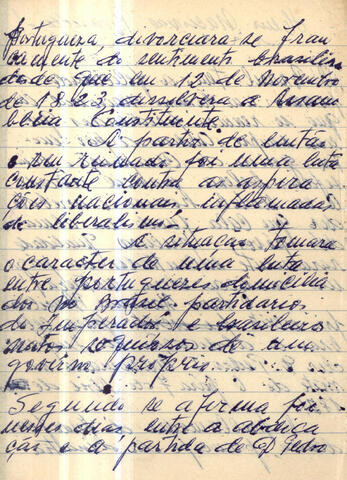 Portugueza, divorciara-se fran
camente do sentimento brasilei
desde que em 12 de Novembro
de 1823 dissolvera a Assem
bleia Constituinte.
A partir de então
o seu reinado foi uma luta
constante contra as aspira
ções nacionais inflamadas
de liberalismo.
A situação tomara
o caracter de uma luta
entre portugueses domicilia
dos no Brasil partidarios
do Imperador e brasileiros
natos de um
governo proprio.
Segundo se afirma foi
nesses dias entre a abdica
ção e a partida de D. Pedro